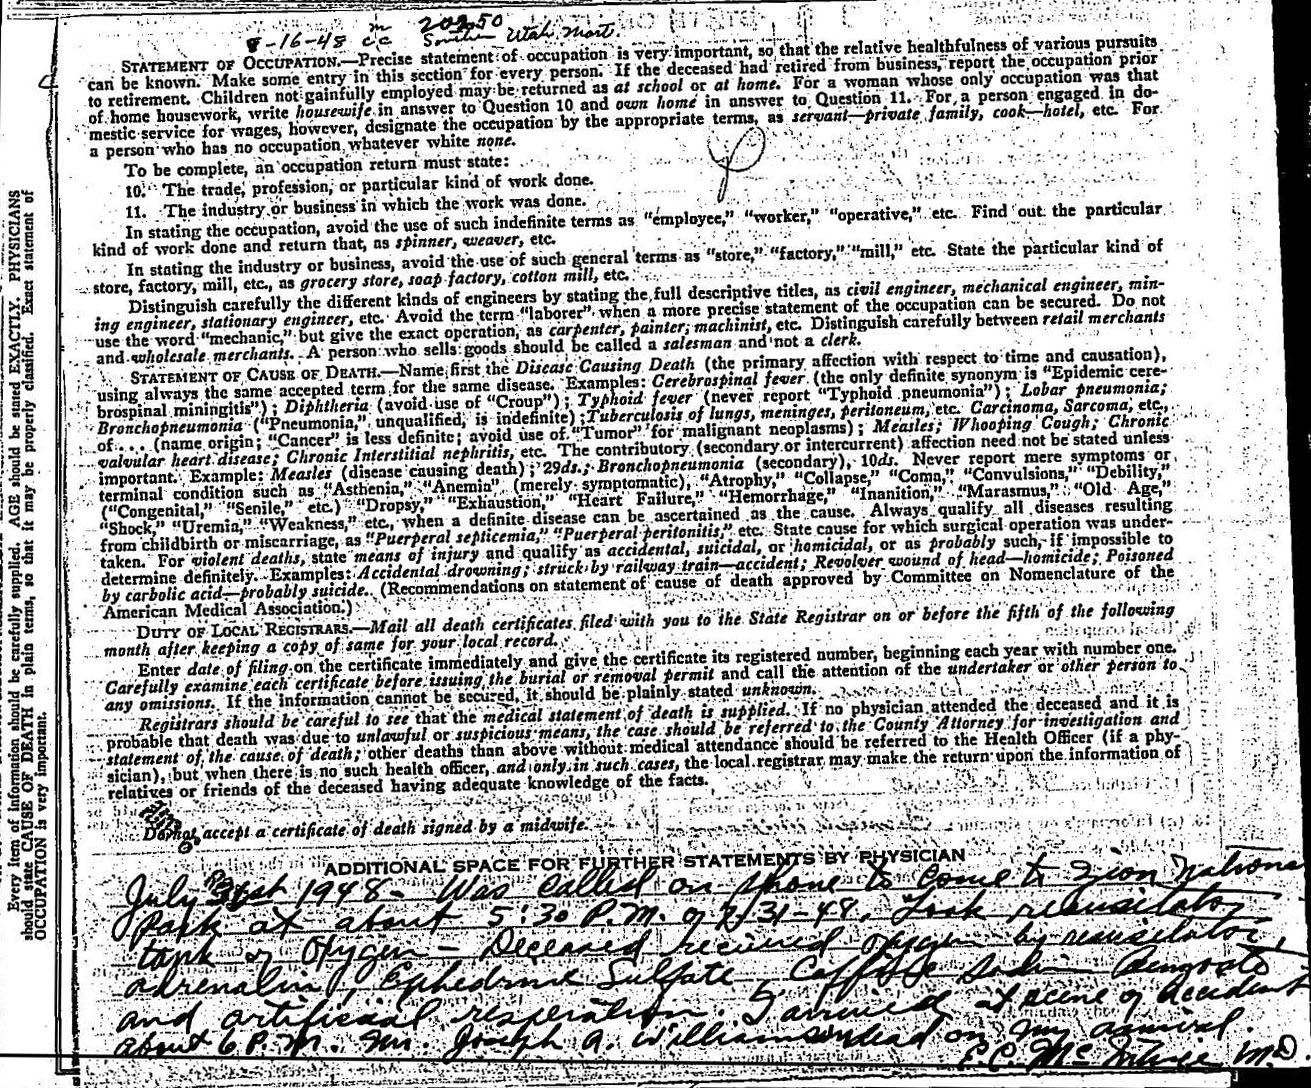 8-16-48 cc 202.50
Southern Utah Mort.
STATEMENT OF OCCUPATION.—Precise statement of occupation is very important, so that the relative healthfulness of various pursuits
can be known. Make some entry in this section for every person. If the deceased had retired from business, report the occupation prior
to retirement. Children not gainfully employed may be returned as at school or at home. For a woman whose only occupation was that
of home housework, write housewife in answer to Question 10 and own home in answer to Question 11. For a person engaged in do-
mestic service for wages, however, designate the occupation by the appropriate terms, as servant—private family, cook—hotel, etc. For
a person who has no occupation whatever white none.
To be complete, an occupation return must state:
10. The trade, profession, or particular kind of work done.
11. The industry or business in which the work was done.
In stating the occupation, avoid the use of such indefinite terms as "employee," "worker," "operative," etc. Find out the particular
kind of work done and return that, as spinner, weaver, etc.
In stating the industry or business, avoid the use of such general terms as "store," "factory," "mill," etc. State the particular kind of
store, factory, mill, etc., as grocery store, soap factory, cotton mill, etc.
Distinguish carefully the different kinds of engineers by stating the full descriptive titles, as civil engineer, mechanical engineer, min-
ing engineer, stationary engineer, etc. Avoid the term "laborer" when a more precise statement of the occupation can be secured. Do not
use the word "mechanic," but give the exact operation, as carpenter, painter, machinist, etc. Distinguish carefully between retail merchants
and wholesale merchants. A person who sells goods should be called a salesman and not a clerk.
STATEMENT OF CAUSE OF DEATH.—Name first the Disease Causing Death (the primary affection with respect to time and causation),
using always the same accepted term for the same disease. Examples: Cerebrospinal fever (the only definite synonym is "Epidemic cere-
brospinal miningitis"); Diphtheria (avoid use of "Croup"); Typhoid fever (never report "Typhoid pneumonia"); Lobar pneumonia;
Bronchopneumonia ("Pneumonia," unqualified, is indefinite); Tuberculosis of lungs, meninges, peritoneum, etc. Carcinoma, Sarcoma, etc.,
of.... (name origin; "Cancer" is less definite; avoid use of "Tumor" for malignant neoplasms); Measles; Whooping Cough; Chronic
valvular heart disease; Chronic Interstitial nephritis, etc. The contributory (secondary or intercurrent) affection need not be stated unless
important. Example: Measles (disease causing death); 29ds.; Bronchopneumonia (secondary), 10ds. Never report mere symptoms or
terminal condition such as "Asthenia," "Anemia" (merely symptomatic), "Atrophy," "Collapse," "Coma," "Convulsions," "Debility,"
("Congenital," "Senile," etc.) "Dropsy," "Exhaustion," "Heart Failure," "Hemorrhage," "Inanition," "Marasmus," "Old Age,"
"Shock," "Uremia," "Weakness," etc., when a definite disease can be ascertained as the cause. Always qualify all diseases resulting
from childbirth or miscarriage, as "Puerperal septicemia," "Puerperal peritonitis," etc. State cause for which surgical operation was under-
taken. For violent deaths, state means of injury and qualify as accidental, suicidal, or homicidal, or as probably such, if impossible to
determine definitely. Examples: Accidental drowning; struck by railway train—accident; Revolver wound of head—homicide; Poisoned
by carbolic acid—probably suicide. (Recommendations on statement of cause of death approved by Committee on Nomenclature of the
American Medical Association.)
DUTY OF LOCAL REGISTRARS.—Mail all death certificates filed with you to the State Registrar on or before the fifth of the following
month after keeping a copy of same for your local record.
Enter date of filing on the certificate immediately and give the certificate its registered number, beginning each year with number one.
Carefully examine each certificate before issuing the burial or removal permit and call the attention of the undertaker or other person to
any omissions. If the information cannot be secured, it should be plainly stated unknown.
Registrars should be careful to see that the medical statement of death is supplied. If no physician attended the deceased and it is
probable that death was due to unlawful or suspicious means, the case should be referred to the County Attorney for investigation and
statement of the cause of death; other deaths than above without medical attendance should be referred to the Health Officer (if a phy-
sician), but when there is no such health officer, and only in such cases, the local registrar may make the return upon the information of
relatives or friends of the deceased having adequate knowledge of the facts.
Do not accept a certificate of death signed by a midwife.
ADDITIONAL SPACE FOR FURTHER STATEMENTS BY PHYSICIAN
July 31st 1948 - Was called on phone to come to Zion National
Park at about 5:30 P.M. of 7/31-48. Took resusitator
tank & Oxygen - Deceased received oxygen by resusitator,
adrenalin, Ephedrine Sulfate, Caffine Sodium Bengoate
and artificial respiration. I arrived at scene of accident
about 6 P.M. Mr. Joseph A. Williams dead on my arrival.
E.C. McIntire M.D.
Every item of information should be carefully supplied. AGE should be stated EXACTLY. PHYSICIANS
should state CAUSE OF DEATH in plain terms, so that it may be properly classified. Exact statement of
OCCUPATION is very important.